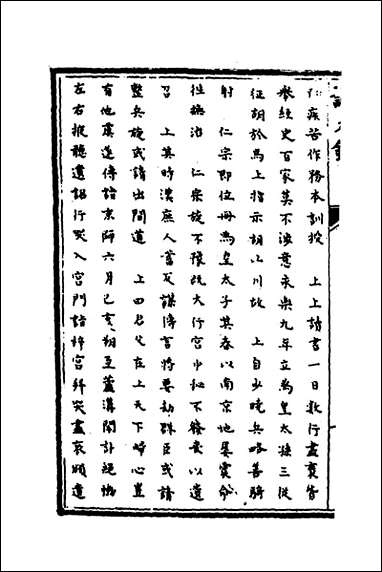 疾苦作務本訓授　上上讀書一日數行盡裏皆
舉經史百家莫不浹意永樂九年立為皇太孫三從
征胡於馬上指示胡山川故　上自少曉兵略善騎
射　仁宗即位冊為皇太子其春以南京地屢震命
往撫治　仁宗旋不豫既大行宮中秘不發喪以遺
召　上其時漢庶人蓄反謀傳言將要劫群臣或請
整兵旋或請出間道　上曰君父在上天下歸心豈
有他虞遂傳詣京師六月己亥朔至蘆溝聞訃絕慟
左右掖聽遺詔行哭入宮門詣梓宮拜哭盡哀頒遺